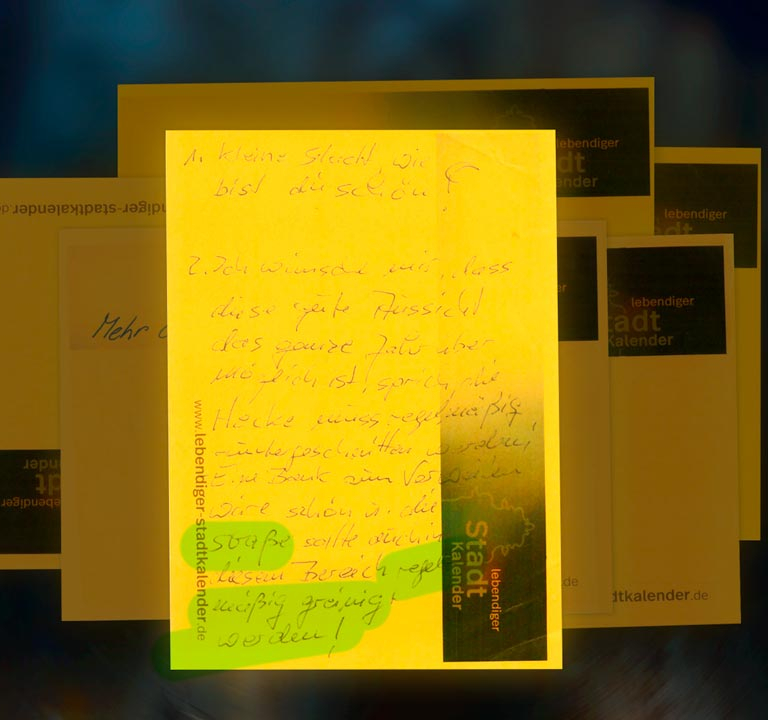 1. kleine Stadt, wie
bist du schön!
2. Ich wünsche mir, dass
diese gute Aussicht
das ganze Jahr über
möglich ist, sprich die
Hecke muss regelmäßig
runtergeschnitten werden!
Eine Bank zum Verweilen
wäre schön u. die
straße sollte auch in
diesem Bereich regel
mäßig greinigt
werden!
www.lebendiger-stadtkalender.de
lebendiger
Stadt
Kalender
Mehr
lebendiger
dt
lender
lebendiger
dt
lebendiger
tadt
Kalender
ndiger-stadtkalender.de
dtkalender.de
.de